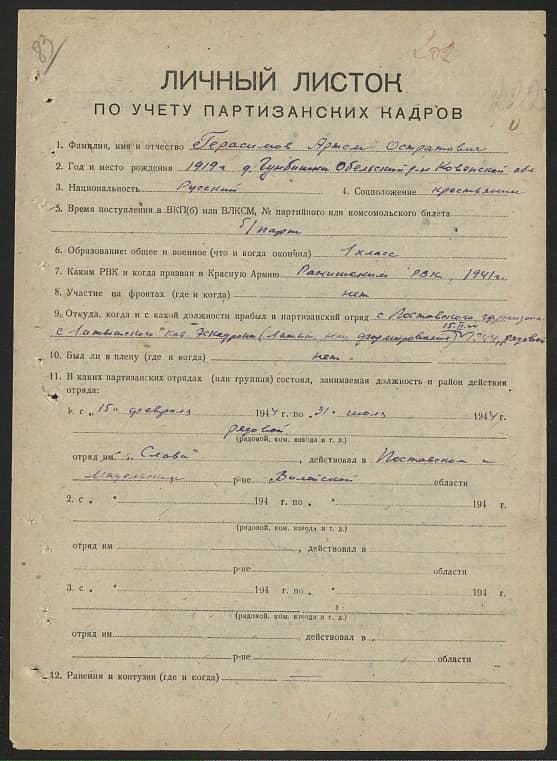 83
202
ЛИЧНЫЙ ЛИСТОК
ПО УЧЕТУ ПАРТИЗАНСКИХ КАДРОВ
1. Фамилия, имя и отчество Герасимов Артем Остратович
2. Год и место рождения 1919 г д. Обельский р-н Ковенской обл
3. Национальность Русский 4. Соцположение крестьянин
5. Время поступления в ВКП(б) или ВЛКСМ, № партийного или комсомольского билета
б/парт
6. Образование: общее и военное (что и когда окончил) 1 класс
7. Каким РВК и когда призван в Красную Армию Ракишским РВК, 1941 г.
8. Участие на фронтах (где и когда) нет
9. Откуда, когда и с какой должности прибыл в партизанский отряд с Поставского гарнизона
15.II.44
с Латышского Кав. Эскадрона рядовой
10. Был ли в плену (где и когда) нет.
11. В каких партизанских отрядах (или группах) состоял, занимаемая должность и район действия
отряда:
1. с „15" февраля 1944 г. по „31" июля 1944 г.
рядовой
(рядовой, ком. взвода и т. д.)
отряд им. „Слава", действовал в Поставском и
Мядельском р-не Вилейской области
2. с „ " 194 г. по „ " 194 г.
(рядовой, ком. взвода и т. д.)
отряд им , действовал в
р-не области
3. с „ " 194 г. по „ " 194 г.
(рядовой, ком. взвода и т. д.)
отряд им , действовал в
р-не области
12. Ранения и контузии (где и когда) —